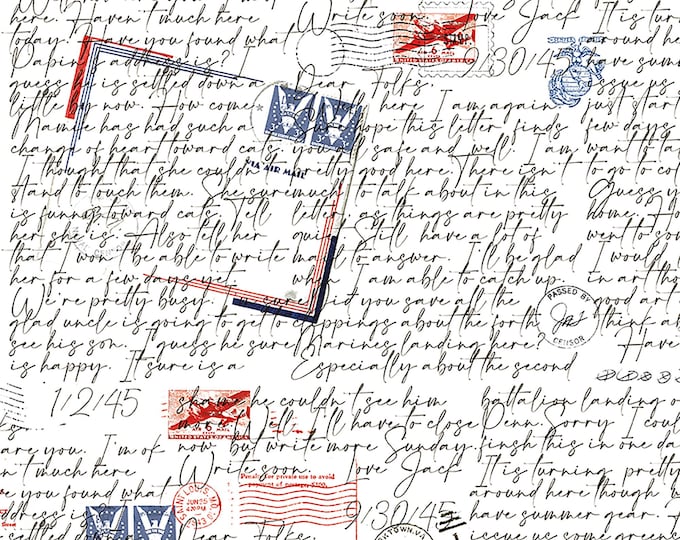 here. Haven't much here Write soon. Love Jack It is turn
today. Have you found what around he
Daping's address is? Dear Folks, 9/30/45 have sum
guess he is settled down a issue us
little by now. How come Well here I am again just star
Mamie has had such a Sure hope this letter finds few days
change of heart toward cats. you all safe and well. I am want to ta
I though that she couldn't pretty good here. There isn't to go to col
stand to touch them. She sure much to talk about in this Guess y
is funny toward cats. Tell letter as things are pretty home. Ho
her she is. Also tell her quiet. Still have a lot of went to sou
that I won't be able to write mail to answer. I'll be glad I would
her for a few days yet. when I am able to catch up. in the
We're pretty busy. I sure Did you save all the good art
glad uncle is going to get to clippings about the forth think ab
see his son. I guess he sure Marines landing here. Have
is happy. It sure is a Especially about the second
VIA AIR MAIL
PASSED BY
CENSOR
1/2/45 shame he couldn't see him battalion landing o
Well I'll have to close Penn. Sorry I coul
are you. I'm ok now but write more Sunday. finsh this in one da
n't much here Write soon. Love Jack It is turning pretty
ve you found what around here though
address is? have summer gear.
Dear Folks, 9/30/45 issue us
UNITED STATES OF AMERICA
6¢
Penalty for private use to avoid
payment of postage, $300.
SAINT LOUIS, MO.
JUN 25
4 30 PM
1943
YORKTOWN, VA.